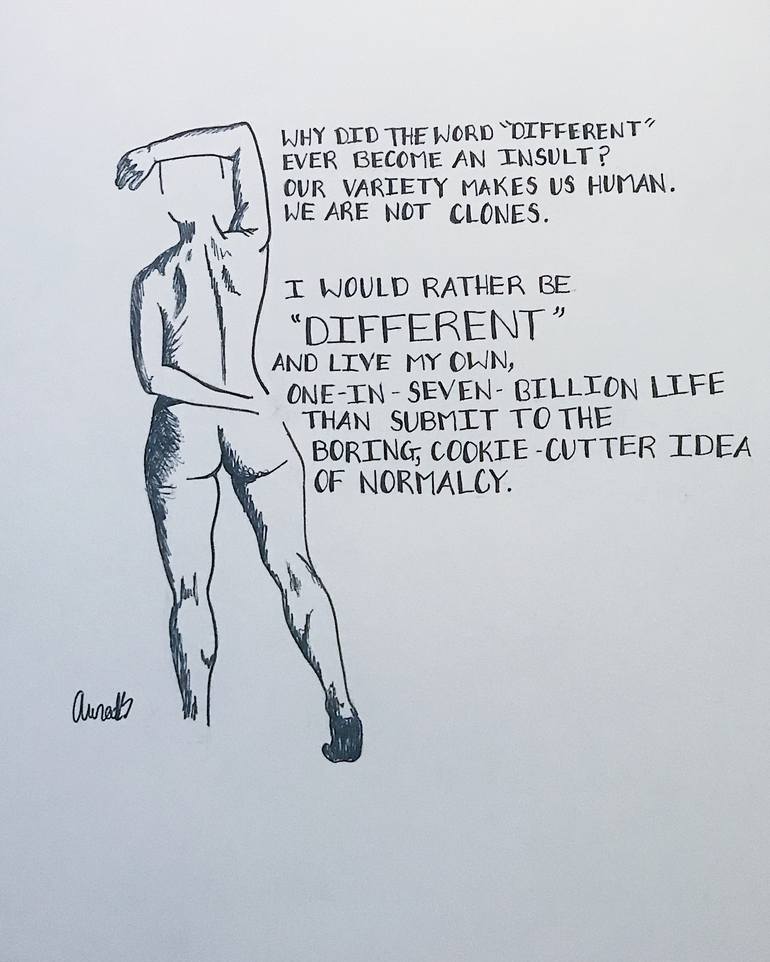 WHY DID THE WORD "DIFFERENT"
EVER BECOME AN INSULT?
OUR VARIETY MAKES US HUMAN.
WE ARE NOT CLONES.
I WOULD RATHER BE
"DIFFERENT"
AND LIVE MY OWN,
ONE-IN-SEVEN-BILLION LIFE
THAN SUBMIT TO THE
BORING, COOKIE-CUTTER IDEA
OF NORMALCY.